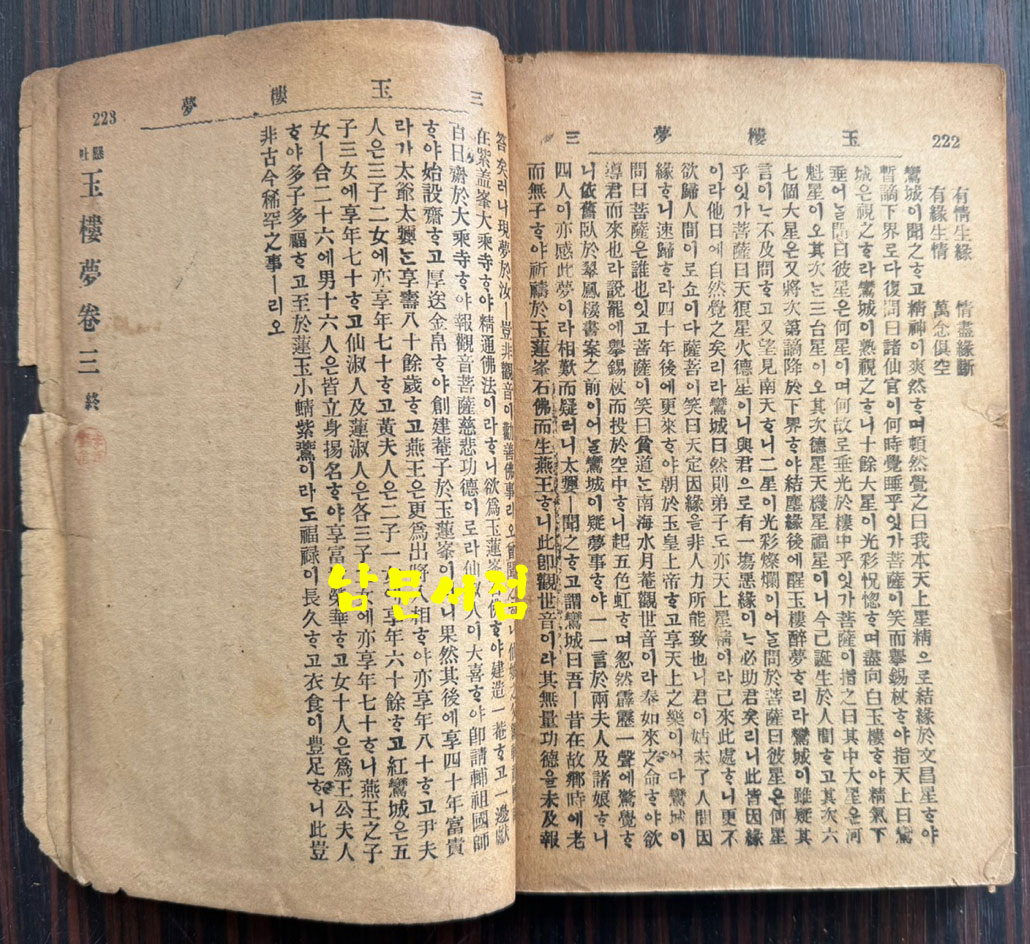 222 玉樓夢 三
有情生緣 情盡緣斷
有緣生情 萬念俱空
鸞城이聞之ᄒᆞ고精神이爽然ᄒᆞ며頓然覺之曰我本天上星精으로結緣於文昌星ᄒᆞ야
暫謫下界로다復問曰諸仙官이何時覺睡乎잇가菩薩이笑而擧錫杖ᄒᆞ야指天上曰鸞
城은視之ᄒᆞ라鸞城이熟視之ᄒᆞ니十餘大星이光彩恍惚ᄒᆞ며盡向白玉樓ᄒᆞ야精氣下
垂어늘問曰彼星은何星이며何故로垂光於樓中乎잇가菩薩이指之曰其中大星은河
魁星이오其次ᄂᆞᆫ三台星이오其次德星天機星福星이니今已誕生於人間ᄒᆞ고其次六
七個大星은又將次第謫降於下界ᄒᆞ야結塵緣後에醒玉樓醉夢ᄒᆞ리라鸞城이雖疑其
言이ᄂᆞ不及問ᄒᆞ고又望見南天ᄒᆞ니二星이光彩燦爛이어ᄂᆞᆯ問於菩薩曰彼星은何星
乎잇가菩薩曰天狼星火德星이니與君으로有一塲惡緣이ᄂᆞ必助君矣리니此皆因緣
이라他日에自然覺之矣리라鸞城曰然則弟子도亦天上星精이라已來此處ᄒᆞ니更不
欲歸人間이로쇼이다菩薩이笑曰天定因緣을非人力所能致也니君이姑未了人間因
緣ᄒᆞ니速歸ᄒᆞ라四十年後에更來ᄒᆞ야朝於玉皇上帝ᄒᆞ고享天上之樂이어다鸞城이
問曰菩薩은誰也잇고菩薩이笑曰貧道ᄂᆞᆫ南海水月菴觀世音이라奉如來之命ᄒᆞ야欲
導君而來也라說罷에擧錫杖而投於空中ᄒᆞ니起五色虹ᄒᆞ며忽然霹靂一聲에驚覺ᄒᆞ
니依舊臥於翠鳳樓書案之前이어ᄂᆞᆯ鸞城이疑夢事ᄒᆞ야一一言於兩夫人及諸娘ᄒᆞ니
四人이亦感此夢이라相歎而疑러니太孆ㅣ聞之ᄒᆞ고謂鸞城曰吾ㅣ昔在故鄕時에老
而無子ᄒᆞ야祈禱於玉蓮峯石佛而生燕王ᄒᆞ니此卽觀世音이라其無量功德을未及報
三 玉樓夢 223
答矣러니現夢於汝ㅣ豈非觀音이勸善佛事리오
在紫盖峯大乘寺ᄒᆞ야精通佛法이라ᄒᆞ니欲爲玉蓮峯 ᄒᆞ야建造一菴ᄒᆞ고一邊獻
百日齋於大乘寺ᄒᆞ야報觀音菩薩慈悲功德이로라仙 人이大喜ᄒᆞ야卽請輔祖國師
ᄒᆞ야始設齋ᄒᆞ고厚送金帛ᄒᆞ야創建菴子於玉蓮峯이 니果然其後에享四十年富貴
라가太爺太孆ᄂᆞᆫ享壽八十餘歲ᄒᆞ고燕王은更爲出將入相ᄒᆞ야亦享年八十ᄒᆞ고尹夫
人은三子二女에亦享年七十ᄒᆞ고黃夫人은二子一 享年六十餘ᄒᆞ고紅鸞城은五
子三女에享年七十ᄒᆞ고仙淑人及蓮淑人은各三子 에亦享年七十ᄒᆞ니燕王之子
女ㅣ合二十六에男十六人은皆立身揚名ᄒᆞ야享富 榮華ᄒᆞ고女十人은爲王公夫人
ᄒᆞ야多子多福ᄒᆞ고至於蓮玉小蜻紫鸞이라도福祿이長久ᄒᆞ고衣食이豊足ᄒᆞ니此豈
非古今稀罕之事ㅣ리오
懸吐 玉樓夢卷三 終
남문서점